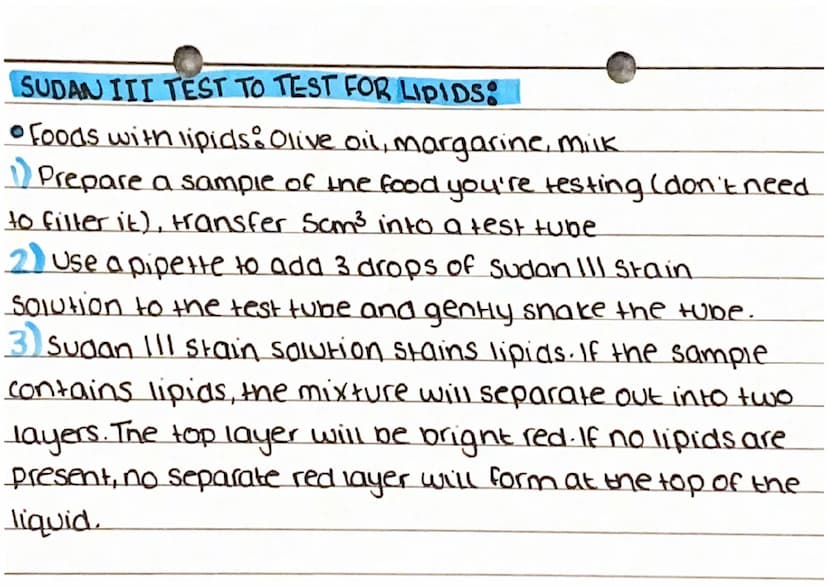 SUDAN III TEST TO TEST FOR LIPIDS:
• Foods with lipids: Olive oil, margarine, milk
1) Prepare a sample of the food you're testing (don't need
to filter it), transfer 5cm³ into a test tube
2) Use a pipette to add 3 drops of Sudan III Stain
solution to the test tube and gently shake the tube.
3) Sudan III stain solution stains lipids. If the sample
contains lipids, the mixture will separate out into two
layers. The top layer will be bright red. If no lipids are
present, no separate red layer will form at the top of the
liquid.